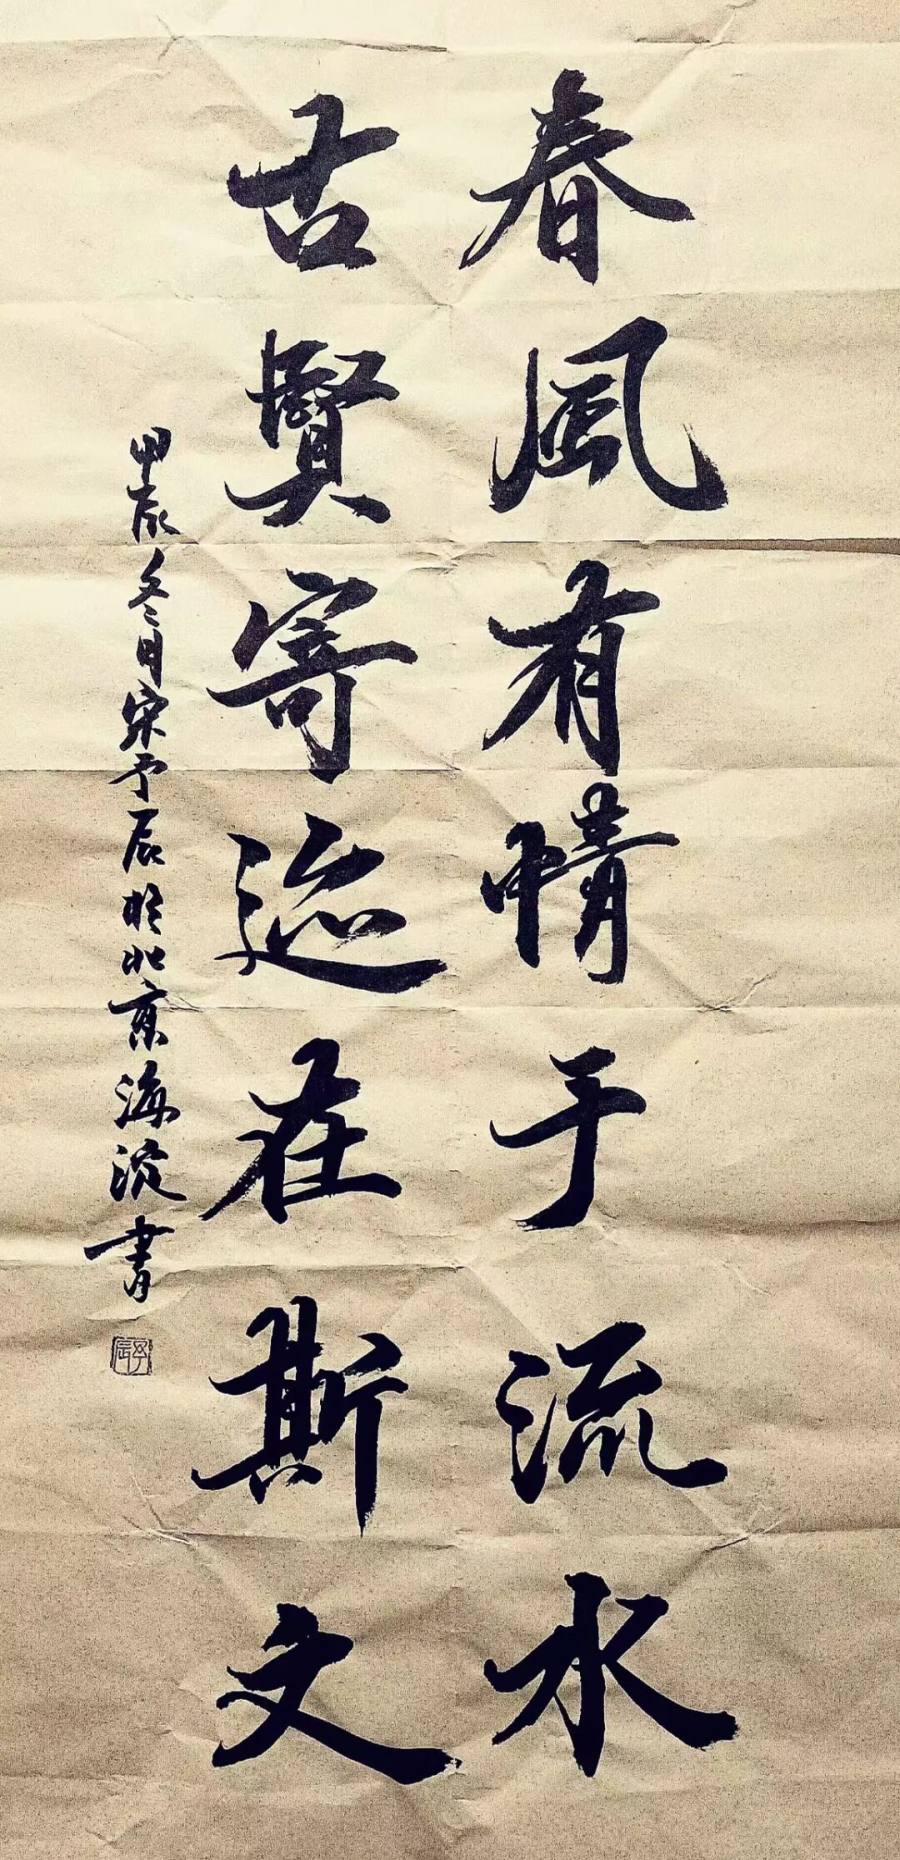 春風有情于流水
古賢寄迹在斯文
甲辰冬月宋予辰於北京海淀書
予辰